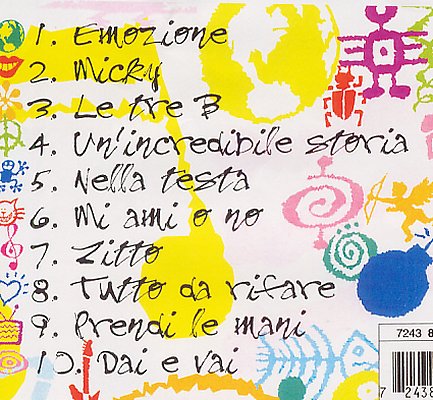 1. Emozione
2. Micky
3. Le tre B
4. Un'incredibile storia
5. Nella testa
6. Mi ami o no
7. Zitto
8. Tutto da rifare
9. Prendi le mani
10. Dai e vai
7243 8
7 2438